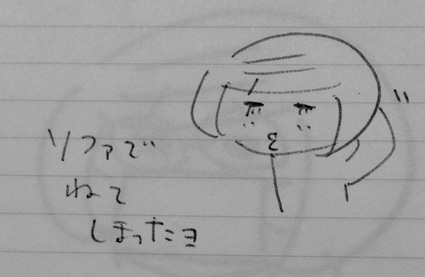 ソファで
ねて
しまったヨ